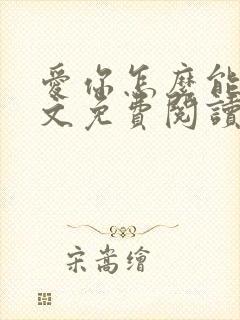 愛你怎麼能
文免費閱讀
宋嵩繪